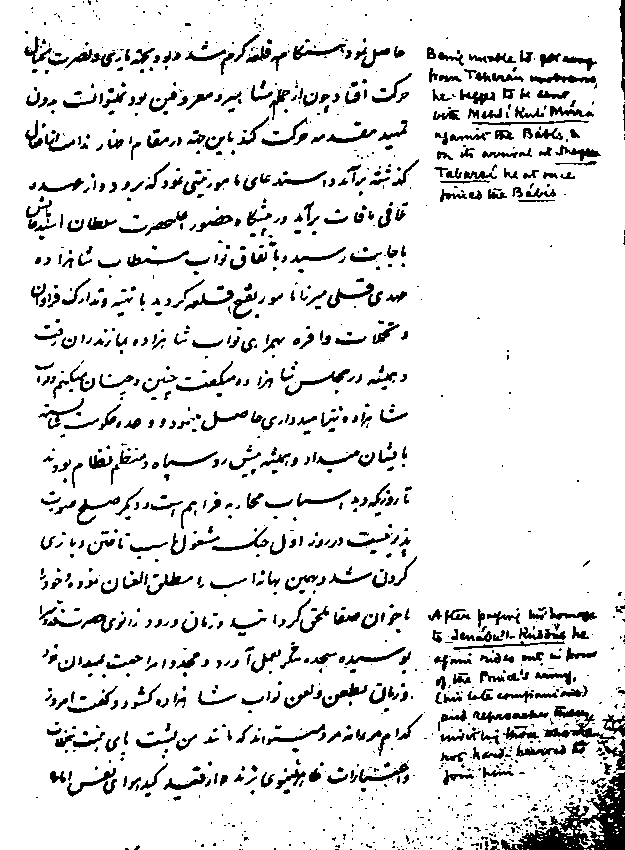 حاصل نمود
حرکت افتاد چون از جمله مشاهیر و معروفین بود نمیتوانست بدون
تمهید مقدمه حرکت کند باین جهة در مقام
گذشته برآمد و استدعای مأموریتی نمود که برود و از عهده
تلافی مافات برآید در پیشگاه حضور اعلیحضرت سلطان
باجابت رسید و باتفاق نواب مستطاب شاهزاده
مهدی قلی میرزا مأمور بفتح قلعه گردید با تهیه و تدارک فراوان
و تجملات وافره بهمراهی نواب شاهزاده بمازندران رفت
و همیشه در مجلس شاهزاده میگفت چنین و چنان میکنم
شاهزاده نیز امیدواری حاصل مینمود و وعده حکومت
بایشان میداد و همیشه پیش رو سپاه و منظم نظام بودند
تا روزیکه دید اسباب محاربه فراهم است و دیگر صلح صورت
پذیر نیست در روز اول جنگ مشغول اسب تاختن و بازی
کردن شد و بهمین بها اسب را مطلق العنان نموده خود را
باخوان صفا ملحق گردانید و زمان ورود زانوی حضرت
بوسیده سجده شکر بعمل آورد و مجددا مراجعت بمیدان نمود
و زبان بطعن و لعن نواب شاهزاده گشود و گفت امروز
کدام مردانه مرد میتواند که مانند من پشت پای
و اعتبارات دنیوی بزند و از قید هوای نفس
Being unable to get away
from Teheran
he begged to be sent
with Mehdí Kulí Mírzá
against the Bábís, &
on its arrival at Sheykh
Tabarsí he at once
joined the Bábís.
After paying his homage
to Jenáb-i-Kuddús he
again rides out in front
of the Prince's army,
(his late companions)
and reproaches them,
inviting those who
not hard hearted to
join him.